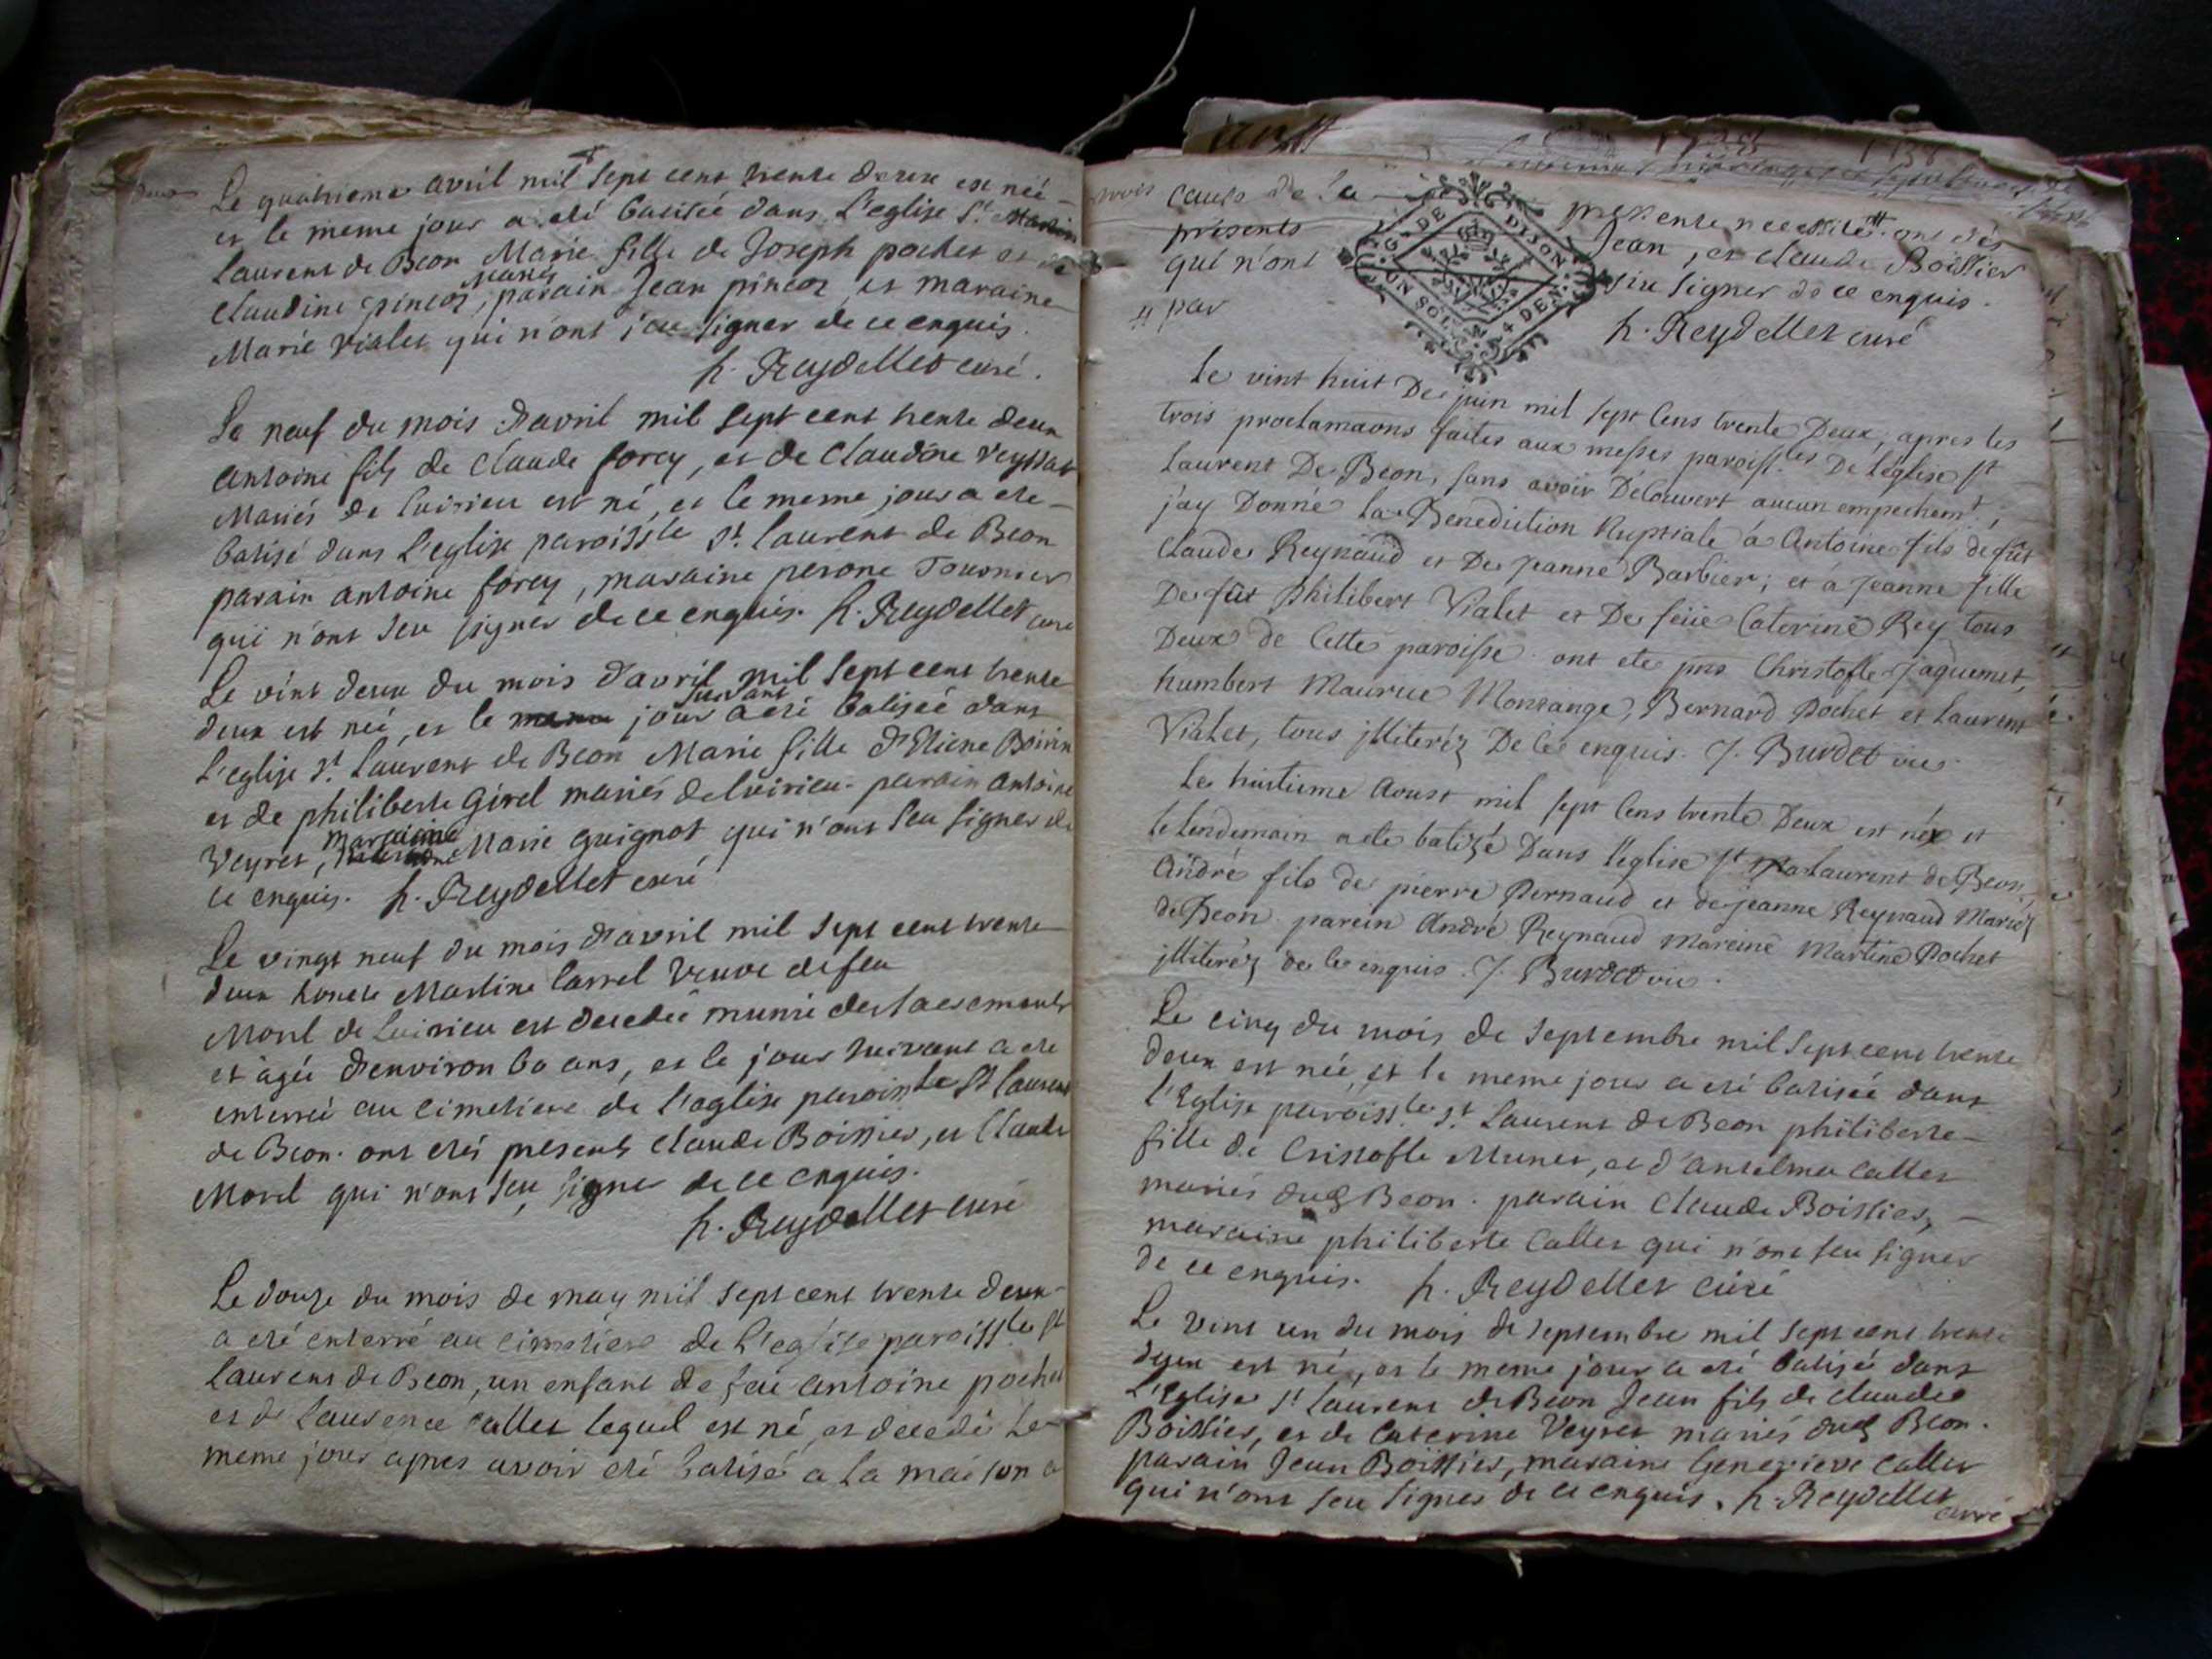 deux
Le quatrieme avril mil sept cent trente deux est née
et le meme jour a eté batisée dans L'eglise St. Martin
Laurent de Beon Marie fille de Joseph pochet et de
Claudine pincoz, parain Jean pincoz, et maraine
Marie vialet qui n'ont seu signer de ce enquis.
h. Reydellet curé.
Le neuf du mois d'avril mil sept cent trente deux
antoine fils de Claude forey, et de Claudine Veyssat
Mariés de luirieu est né, et le meme jour a ete
batisé dans L'eglise paroissle St. laurent de Beon
parain antoine forey, maraine perone Tournier
qui n'ont seu signer de ce enquis. h. Reydellet curé
Le vint deux du mois d'avril mil sept cent trente
suivant
deux est née, et le jour a eté batisée dans
L'eglise St. Laurent de Beon Marie fille d'Etiene Boirin
et de philiberte Girel mariés de luirieu. parain antoine
maraine
Veyret, Marie guignot qui n'ont seu signer de
ce enquis. h. Reydellet curé
Le vingt neuf du mois d'avril mil sept cent trente
deux honete Martine Carrel veuve de feu
Morel de Luirieu est decedée munie des sacements
et àgée d'environ 60 ans, et le jour suivant a ete
enterrée au cimetiere de l'eglise paroissle St laurent
de Beon. ont etés presents Claude Boissier, et Claude
Morel qui n'ont seu signer de ce enquis.
h. Reydellet curé
Le douze du mois de may mil sept cent trente deux
a eté enterré au cimetiere de L'eglise paroissle St
Laurent de Beon, un enfant de feu antoine pochet
et de Laurence Callet lequel est né, et decedé le
meme jour apres avoir eté batisé a la maison a
trois
cause de la presente necessité. ont etés
présents Jean, et claude Boissier
qui n'ont seu signer de ce enquis.
par
G. DE DIJON
UN SOL. N. 4 DEN.
h. Reydellet curé
Le vint huit De juin mil sept Cens trente Deux, apres les
trois proclamaons faites aux messes paroiss.les De l'église St
Laurent De Beon, sans avoir Découvert aucun empechemt,
j'ay Donné la Benediction Nuptiale á Antoine fils de fût
Claude Reynaud et De Jeanne Barbier; et á Jeanne fille
De fût Philibert Vialet et De feüe Caterine Rey tous
Deux de Cette paroisse. ont ete pns Christofle Jaquemet,
humbert Maurice Monrange, Bernard Pochet et Laurent
Vialet, tous jlliteréz De Ce enquis. J. Burdet vic.
Le huitieme Aoust mil sept Cens trente Deux est né et
le lendemain a ete batizé Dans l'église St Laurent de Beon,
André fils de pierre Pernaud et de jeanne Reynaud Mariéz
de Beon. parein André Reynaud Mareine Martine Pochet
jlliteréz de Ce enquis. J. Burdet vic.
Le cinq du mois de septembre mil sept cent trente
deux est née, et le meme jour a eté batisée dans
l'Eglise paroiss.le St. Laurent de Beon philiberte
fille de Cristofle Munet, et d'antelme Callet
mariés dud Beon. parain Claude Boissier,
maraine philiberte Callet qui n'ont seu signer
de ce enquis. h. Reydellet curé
Le vint un du mois de septembre mil sept cent trente
deux est né, et le meme jour a eté batisé dans
L'Eglise St laurent de Beon Jean fils de claude
Boissier, et de Caterine Veyret mariés dud Beon.
parain Jean Boissier, maraine Genevieve Callet
qui n'ont seu signer de ce enquis. h. Reydellet
curé